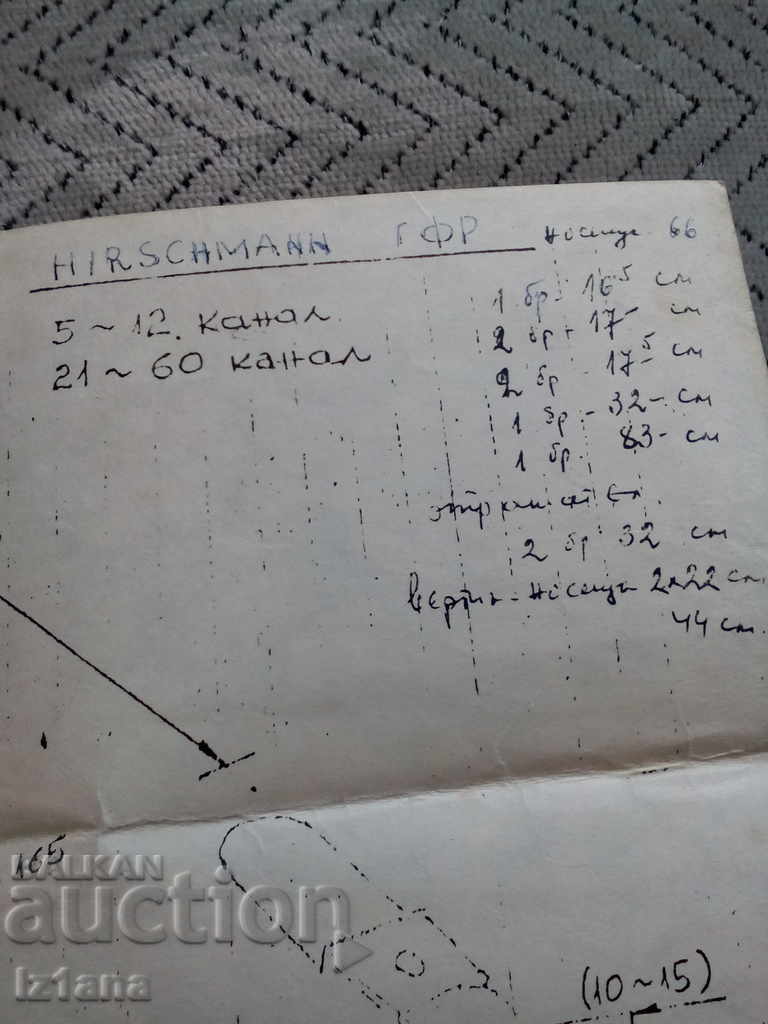 HIRSCHMANN ГФР
носещи 66
5 ~ 12. канал
21 ~ 60 канал
1 бр - 16⁵ см
2 бр - 17- см
2 бр - 17⁵ см
1 бр - 32- см
1 бр. 83- см
2 бр 32 см
вертик - носещи 2x22 см
44 см.
165
BALKAN
auction
Iz1ana
(10~15)